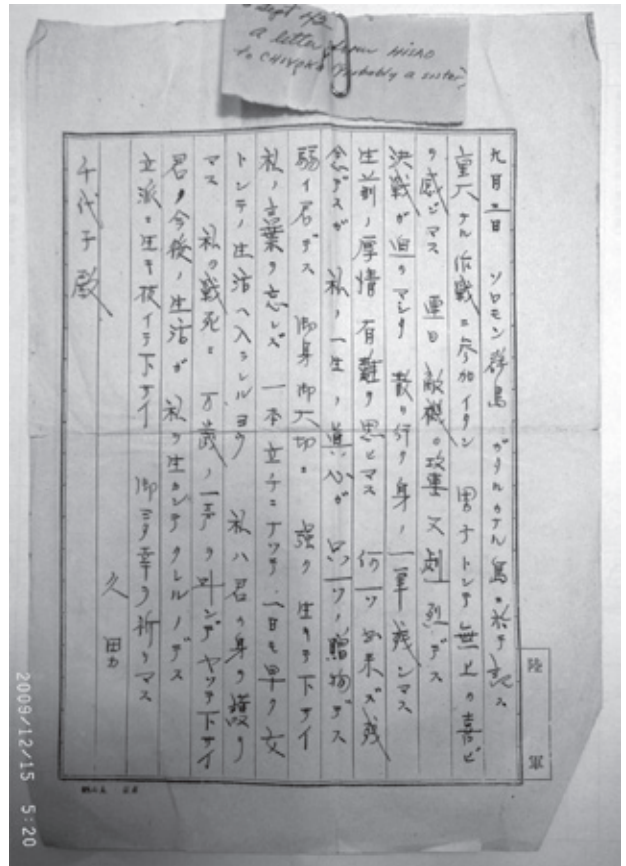 Sept 42
a letter from HISAO
to CHIYOKO (probably a sister)
陸軍
九月二日 ソロモン群島 ガダルカナル島ニ於テ記ス
重大ナル作戦ニ参加イタシ 男子トシテ無上ノ喜ビ
ヲ感ジマス 連日敵機ノ攻撃又劇烈デス
決戦ガ迫リマシタ 散リ行ク身ノ一筆残シマス
生前ノ厚情有難ク思ヒマス 何一ツ出来ズ残
念デスガ 私ノ一生ノ真心ガ只一ツノ贈物デス
弱イ君デス 御身御大切ニ 強ク生キテ下サイ
私ノ言葉ヲ忘レズ 一本立チニナツテ 一日モ早ク女
トシテノ生活ヘ入ラレルヨウ 私ハ君ノ身ヲ護リ
マス 私ノ戦死ニ 万歳ノ一声ヲ叫ンデヤツテ下サイ
君ノ今後ノ生活ガ 私ヲ生カシテクレルノデス
立派ニ生キ抜イテ下サイ 御多幸ヲ祈リマス
久男
千代子殿
2009/12/15 5:20